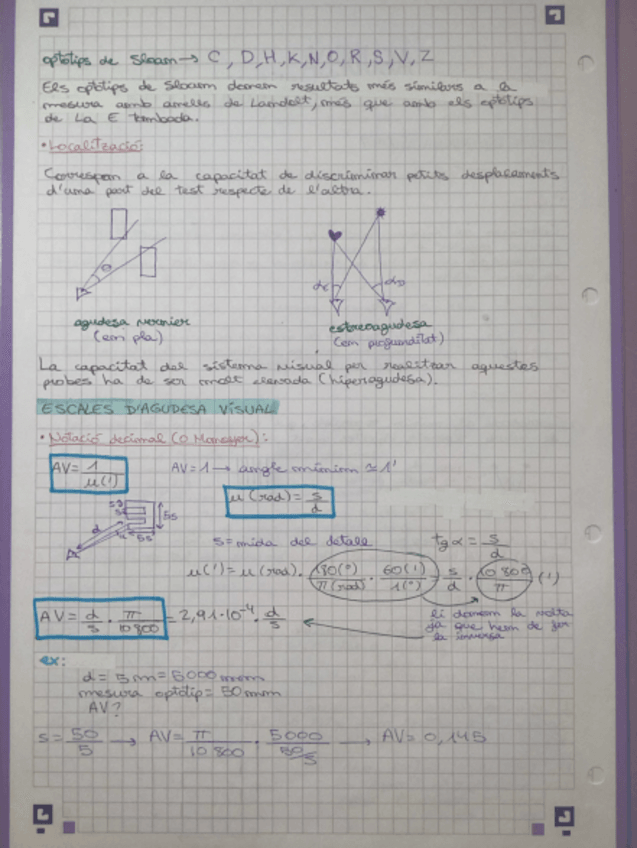 optotips de Sloan → C, D, H, K, N, O, R, S, V, Z
Els optotips de Sloan donen resultats més similars a la
mesura amb anells de Landolt, més que amb els optotips
de La E tombada.
• Localització:
Correspon a la capacitat de discriminar petits desplaçaments
d'una part del test respecte de l'altra.
θ
αc αD
agudesa vernier
(en pla)
estreoagudesa
(em profunditat)
La capacitat del sistema visual per realitzar aquestes
probes ha de ser molt elevada (hiperagudesa).
ESCALES D'AGUDESA VISUAL
• Notació decimal (o Monoyer):
AV = 1/u(') AV = 1 → angle mínim ≃ 1'
u (rad) = s/d
s s 5s
d u 5s
s = mida del detall tg α = s/d
u(') = u (rad) · 180(°)/π(rad) · 60(')/1(°) = s/d · 10 800/π (')
AV = d/s · π/10 800 = 2,91·10⁻⁴ · d/s
li donem la volta
ja que hem de fer
la inversa
ex:
d = 5 m = 5000 mm
mesura optotip = 50 mm
AV?
s = 50/5 → AV = π/10 800 · 5000/50/5 → AV = 0,145